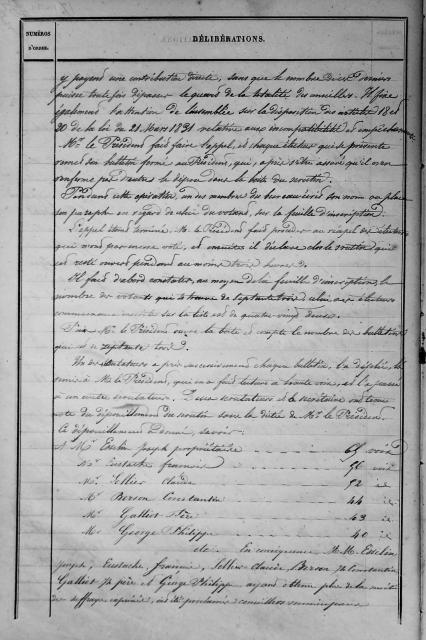 NUMÉROS
D'ORDRE.
DÉLIBÉRATIONS.
y payant une contribution directe, sans que le nombre de ces derniers
puisse toute fois dépasser le quart de la totalité des conseillers. Il fixe
également l'attention de l'assemblée sur la disposition des articles 18 et
20 de la loi du 21 Mars 1831 relative aux incompatibilités et empêchements
Mr. le Président fait faire l'appel, et chaque électeur qui se présente
remet son bulletin fermé au Président, qui, après s'être assuré qu'il n'en
renferme pas d'autres le dépose dans la boite du scrutin.
Pendant cette opération, un des membres du bureau écrit son nom ou place
son paraphe en regard de celui du votant, sur la feuille d'inscription.
L'appel étant terminé, M. le Président fait procéder au réappel des électeurs
qui n'ont pas encore voté, et ensuite il déclare clos le scrutin qui
est resté ouvert pendant au moins trois heures.
Il fait d'abord constater, au moyen de la feuille d'inscription, le
nombre de votants qui se trouve de septante trois celui des électeurs
communaux inscrits sur la liste est de quatre-vingt deux.
Mr. le Président ouvre la boite et compte le nombre des bulletins
qui est septante trois.
Un des scrutateurs a pris successivement chaque bulletin, l'a déplié, l'a
remis à Mr. le Président, qui en a fait lecture à haute voix, et l'a passé
à un autre scrutateur. Deux scrutateurs et le secrétaire ont tenu
note du dépouillement du scrutin sous la dictée de Mr. le Président.
Ce dépouillement a donné, savoir:
A Mr. Esselin joseph propriétaire 65 voix
Mr. Eustache francois 56 voix
Mr. Sellier claude 52 id.
Mr. Berson Constantin 44 id.
Mr. Galliot père 43 id.
Mr. George Philippe 40 id.
etc. En conséquence M.M. Esselin
joseph, Eustache, francois, Sellier claude, Berson Constantin
Galliot père et George Philippe ayant obtenu plus de la moitié
de suffrages exprimés, ont été proclamés conseillers municipaux